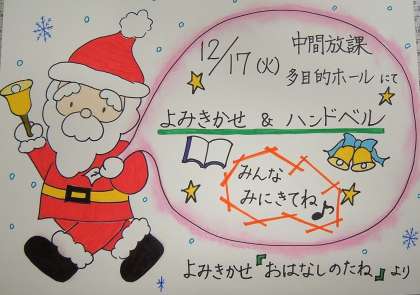 12/17(火) 中間放課
多目的ホールにて
よみきかせ & ハンドベル
みんな
みにきてね♪
よみきかせ『おはなしのたね』より